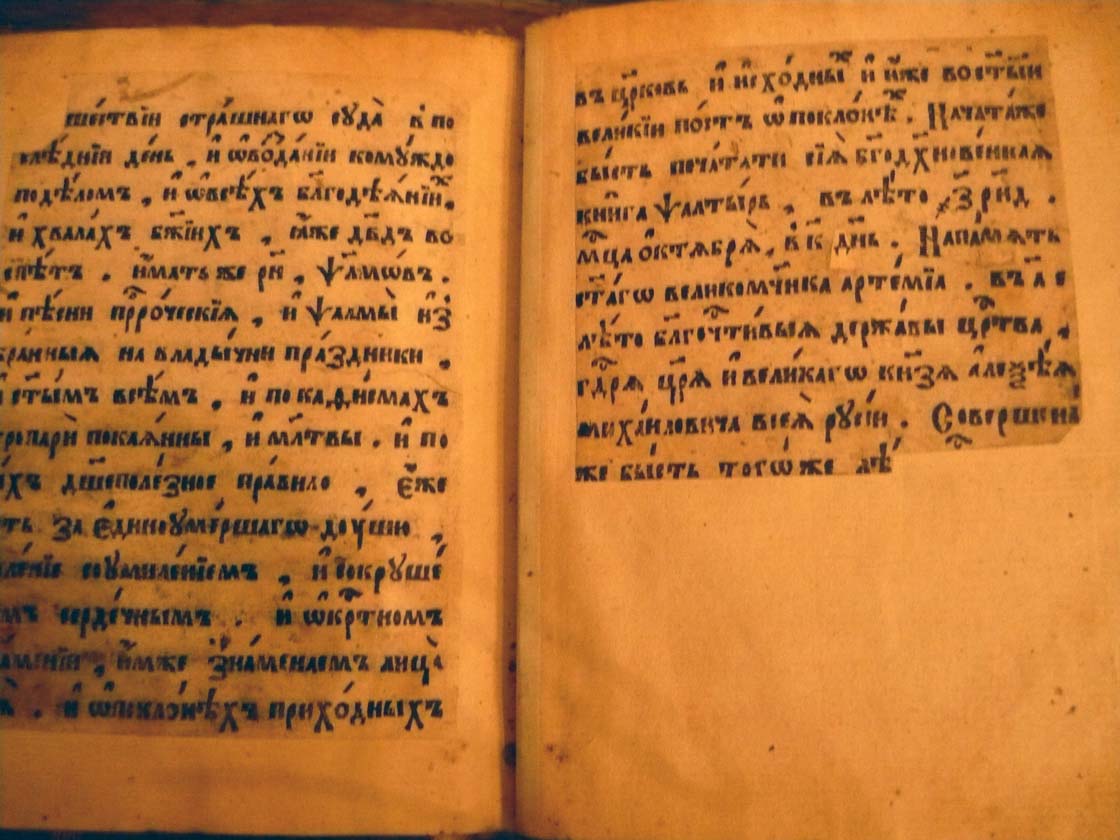 шествїи стра́шнагѡ сꙋда̀ в̾ по
слѣ́днїи де́нь , и҆ ѡ҆во́данїи комꙋ́ждо
по дѣ́ломъ , и҆ ѡ҆ всѣ́хъ бл҃годѣѧ́нїи .
и҆ хвала́хъ бж҃їихъ , ꙗ҆́же дв҃дъ во
спѣ́тъ . и҆́мать же рн҃ , ѱал̾мѡ́въ .
и҆ пѣ́сни прⷪ҇ро́ческїѧ , и҆ ѱал̾мы̀ и҆з̾
бра́нныѧ на влады́чни пра́здники ,
и҆ ст҃ы́мъ всѣ́мъ , и҆ по каѳи́смахъ
тропарѝ покаѧ́нны , и҆ мл҃твы . и҆ по
дш҃еполе́зное пра́вило , є҆́же
за є҆ди́но ᲂу҆ме́ршагѡ дꙋ́шꙋ ,
со ᲂу҆миле́нїемъ , и҆ сокрꙋше́
серде́чнымъ . и҆ ѡ҆ крⷭ҇тномъ
зна́менїи , и҆́мже зна́менаемъ лица̀
. и҆ ѡ҆ покло́нѣхъ прихо́дныхъ
въ цр҃ковь и҆ и҆схо́дныⷯ и҆ и҆̀же во ст҃ы́и
вели́кїи по́стъ ѡ҆ покло́нѣⷯ . Нача́та́же
бы́сть печа́тати сїѧ̀ бг҃одх҃нове́ннаѧ
кни́га Ѱалты́рь , въ лѣ́то ҂зр҃нд .
мцⷭ҇а ѻ҆ктѧбрѧ̀ , в̾ к҃ дн҃ь . На па́мѧть
ст҃а́гѡ великомч҃ника артемїа . въ а҃ е
лѣ́то бл҃гочⷭ҇ти́выѧ держа́вы црⷭ҇тва ,
гдⷭ҇рѧ̀ цр҃ѧ̀ и҆ вели́кагѡ кн҃зѧ а҆леѯѣ́ѧ
миха́иловича всеѧ̀ рꙋсі́и . Соверше́на
же бы́сть тогѡ́же лѣ́